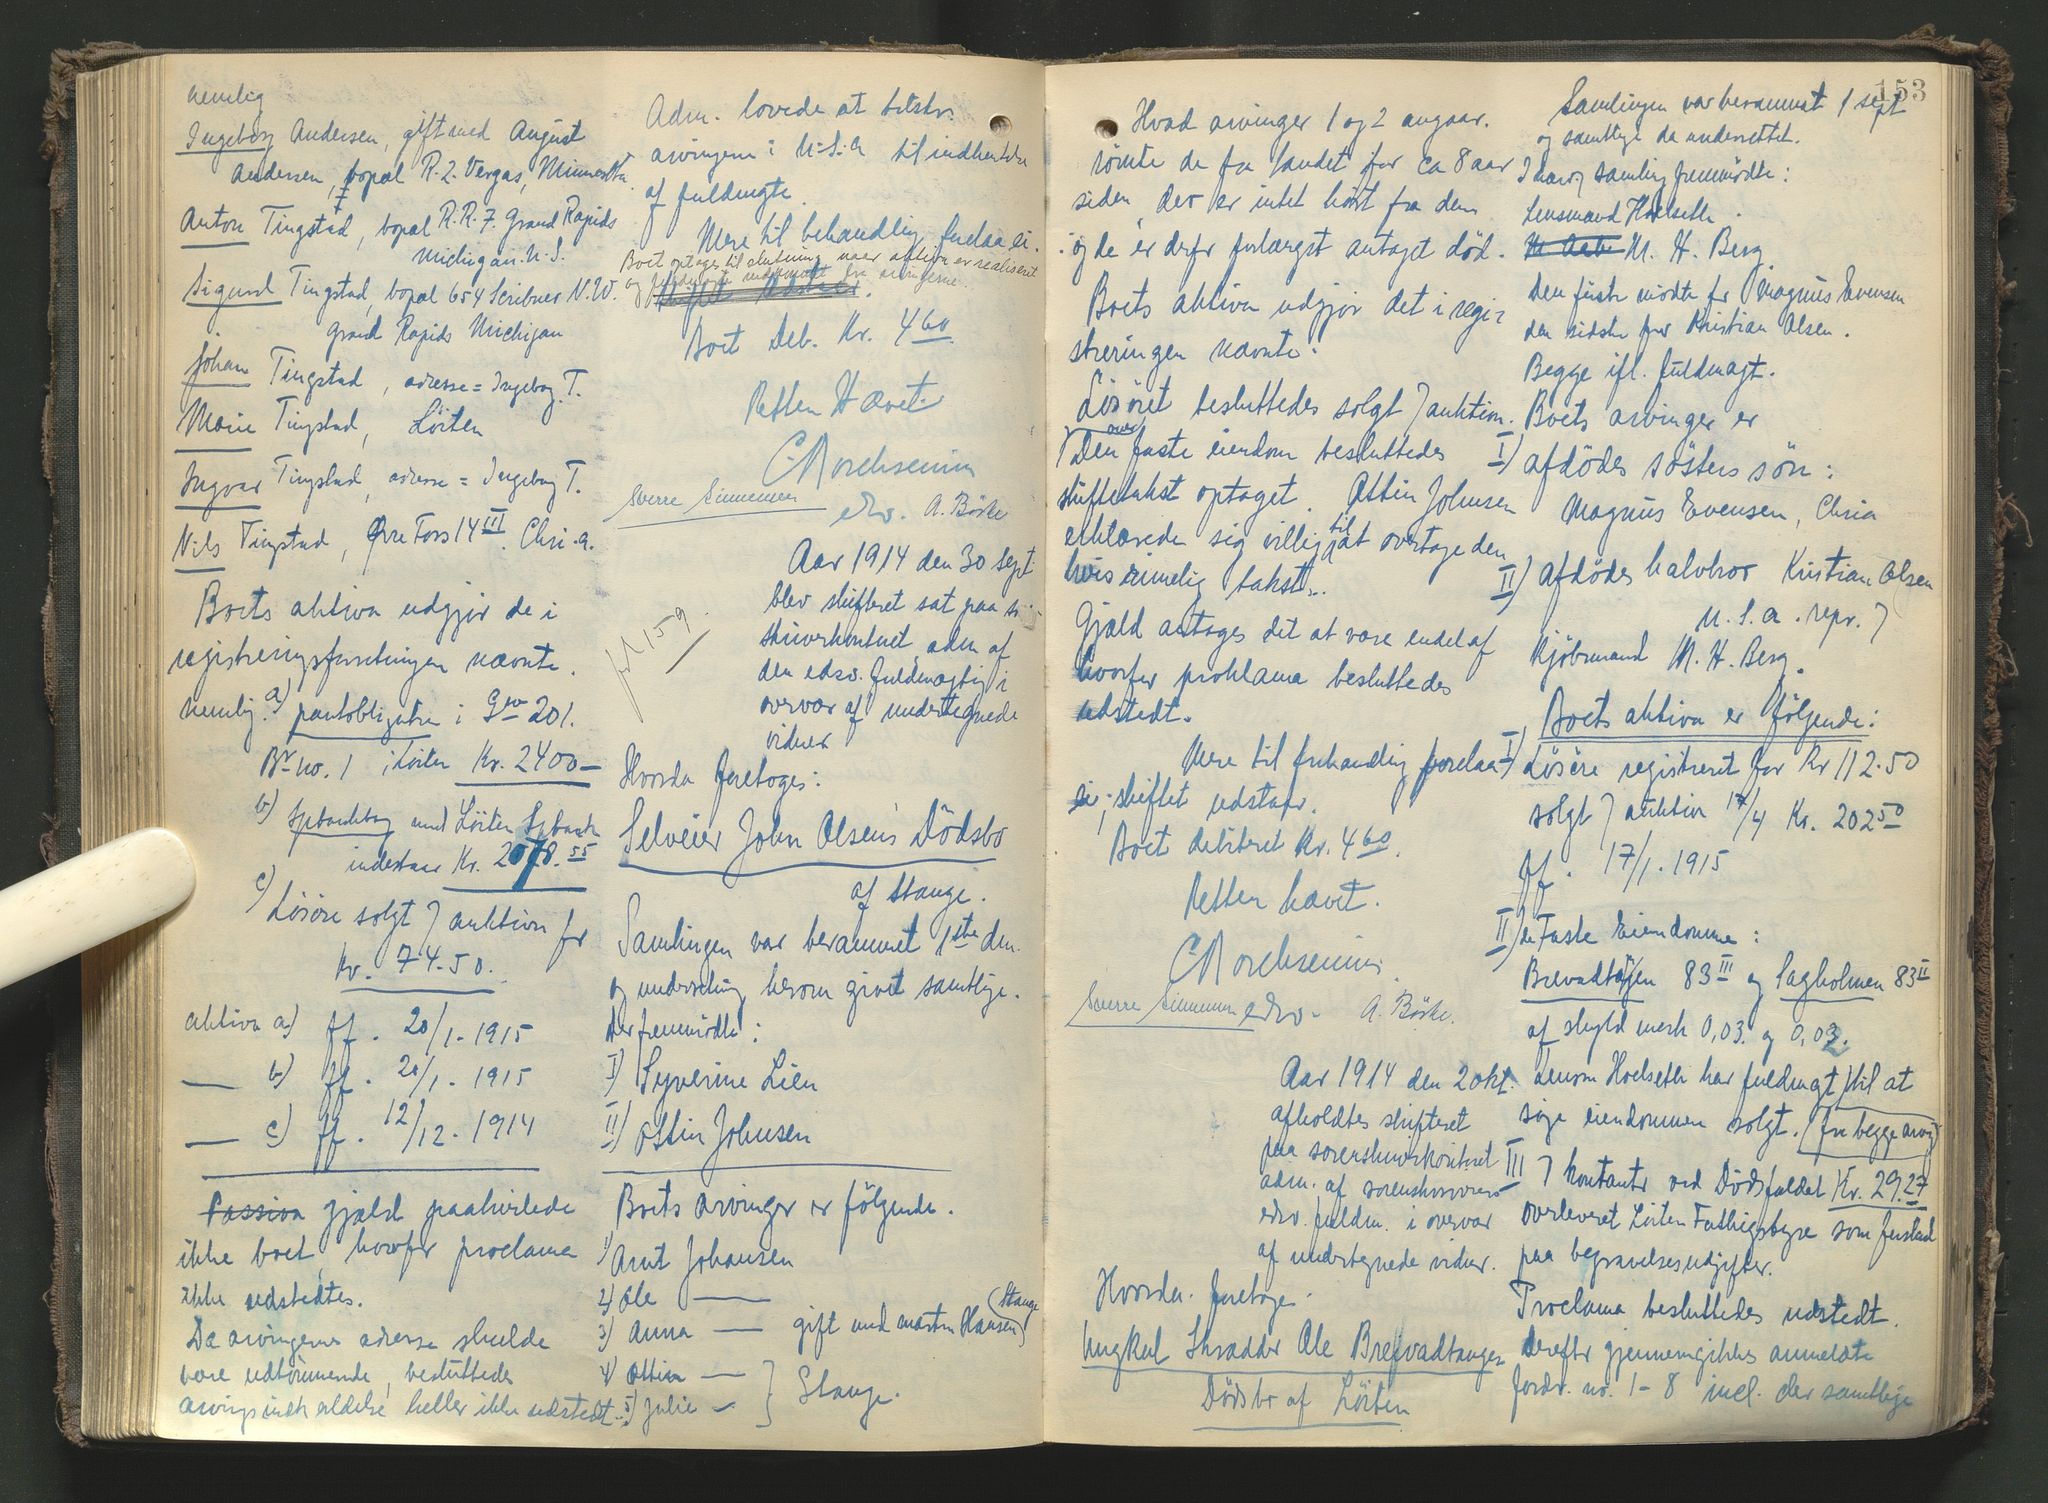 nemlig
Ingeborg Andersen, gift med August
Andersen, bopæl R. 2. Vergas, Minnesota
Anton Tingstad, bopæl R.R. 7. Grand Rapids
Michigan. U.S.
Sigurd Tingstad, bopæl 654 Scribner N.W.
Grand Rapids Michigan
Johan Tingstad, adresse = Ingeborg T.
Marie Tingstad, Löiten
Ingvar Tingstad, adresse = Ingeborg T.
Nils Tingstad, Øvre Foss 14 III. Chri.a.
Boets aktiva udgjör de i
registreringsforretningen nævnte.
nemlig a) pantobligation i Gno 201.
Br no. 1 i Löiten Kr. 2400 —
b) Spbankbog med Löiten Spbank
indestaar Kr. 2078.55
c) Lösöre solgt v auktion for
Kr. 74.50.
aktiva a) ff. 20/1. 1915
— b) ff. 20/1. 1915
— c) ff. 12/12. 1914
Passiva gjæld paahvilede
ikke boet, hvorfor proclama
ikke udstedtes.
Da arvingernes adresse skulde
være udtömmende, besluttedes
arvingsindkaldelse heller ikke udstedt.
Adm. lovede at tilskr.
arvingerne i U.S.A til indhentelse
af fuldmagte.
Mere til behandling forelaa ei.
Boet optages til slutning naar aktiva er realiseret
og fuldmagte indkommet fra arvingerne.
Boet Deb. Kr. 4 60
Retten Hævet.
C Borchsenius
edsv.
Sverre Simensen A. Börke
Aar 1914 den 30 sept.
blev skifteret sat paa so-
skriverkontoret adm af
den edsv. fuldmægtig i
overvær af undertegnede
vidner
fol 159
Hvorda foretoges:
Selveier John Olsens Dödsbo
af Stange.
Samlingen var berammet 1ste dm.
og underretning herom givet samtlige.
Der fremmödte:
I) Syverine Lien
II) Ottin Johnsen
Boets arvinger er fölgende.
1) Arnt Johansen
2) Ole —
3) Anna — gift med Martin Hansen (Stange)
4) Ottin —
5) Julie — } Stange.
153
Hvad arvinger 1 og 2 angaar.
römte de fra landet for ca 8 aar
siden, der er intet hört fra dem
og de er derfor forlængst antaget död.
Boets aktiva udgjör det i regi-
streringen nævnte.
Lösöret besluttedes solgt v auktion.
Over Den faste eiendom besluttedes
skiftetakst optaget. Ottin Johnsen
erklærede sig villig til at overtage den
hvis rimelig takst.
Gjæld antages det at være endel af
hvorfor proklama besluttedes
udstedt.
Mere til forhandling forelaa
ei, skiftet udstaar.
Boet debiteret Kr. 4 60.
Retten hævet.
C Borchsenius
Sverre Simensen edsv. A. Börke.
Aar 1914 den 2 okt.
afholdtes skifteret
paa sorenskriverkontoret
adm. af sorenskriverens
edsv. fuldm. i overvær
af undertegnede vidner.
Hvorda. foretoges.
Ungkarl Skrædder Ole Brefvadtangen
Dödsbo af Löiten
Samlingen var berammet 1 sept
og samtlige da underrettet.
I næv. samling fremmödte:
Lensmand Hoelseth.
M. H. Berg.
Den förste mödte for Magnus Evensen
den sidste for Kristian Olsen.
Begge ifl. fuldmagt.
Boets arvinger er
I) afdödes sösters sön:
Magnus Evensen, Chria
II) afdödes halvbror Kristian Olsen
U.S.A. repr. v
Kjöbmand M. H. Berg.
Boets aktiva er fölgende:
I) Lösöre registreret for Kr 112.50
solgt v auktion 17/4 Kr. 202 50
ff. 17/1. 1915
II) de Faste Eiendomme:
Brevadtangen 83 III og Sagholmen 83 II
af skyld mark 0,03. og 0,02.
lensm Hoelseth har fuldmagt til at
söge eiendommen solgt. (fra begge arving)
III v kontanter ved Dödsfaldet Kr. 29.27
overleveret Löiten Fattigstyre som forskud
paa begravelsesudgifter.
Proclama besluttedes udstedt.
derefter gjennemgikkes anmeldte
fordr. no. 1-8 incl. der samtlige